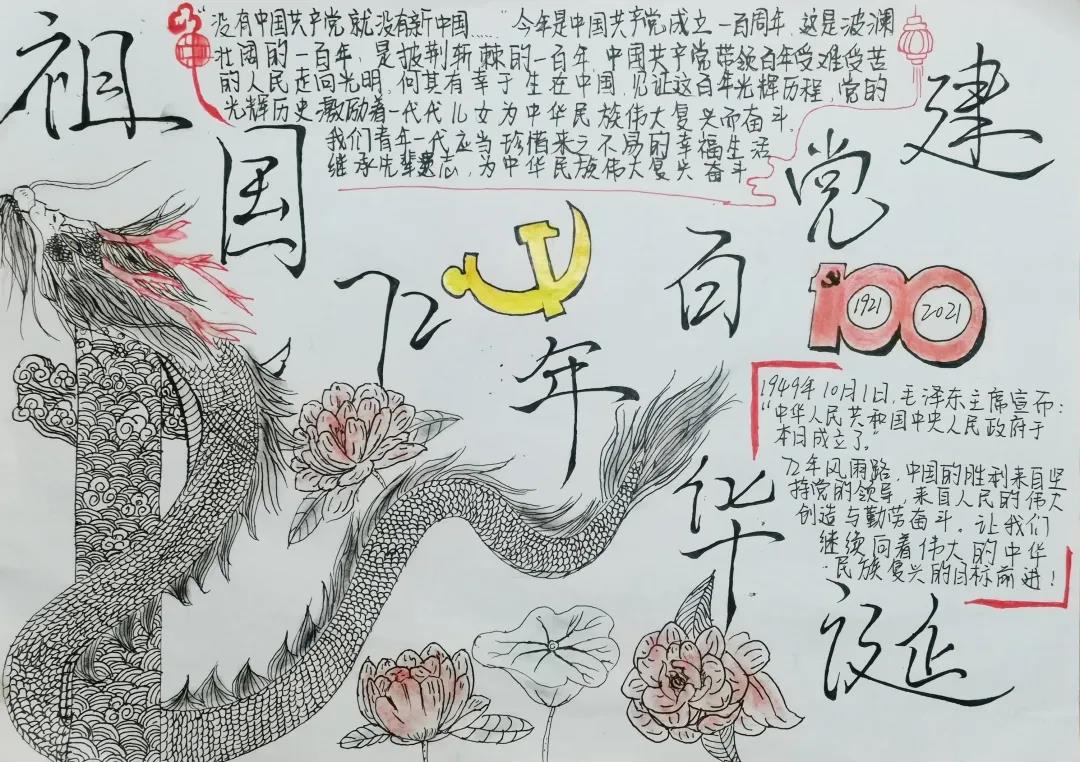 祖国72年华诞
建党百年
"没有中国共产党就没有新中国……"今年是中国共产党成立一百周年,这是波澜
壮阔的一百年,是披荆斩棘的一百年,中国共产党带领百年受难受苦
的人民走向光明,何其有幸于生在中国,见证这百年光辉历程,党的
光辉历史激励着一代代儿女为中华民族伟大复兴而奋斗。
我们青年一代应当珍惜来之不易的幸福生活
继承先辈遗志,为中华民族伟大复兴奋斗
100
1921
2021
1949年10月1日,毛泽东主席宣布:
"中华人民共和国中央人民政府于
本日成立了"
72年风雨路,中国的胜利来自坚
持党的领导,来自人民的伟大
创造与勤劳奋斗。让我们
继续向着伟大的中华
民族复兴的目标前进!